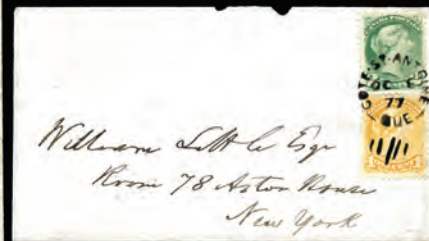 CANADA POSTAGE
COTE-ST-ANTOINE
OC
77
QUE
William Little Esqr
Room 78 Astor House
New York